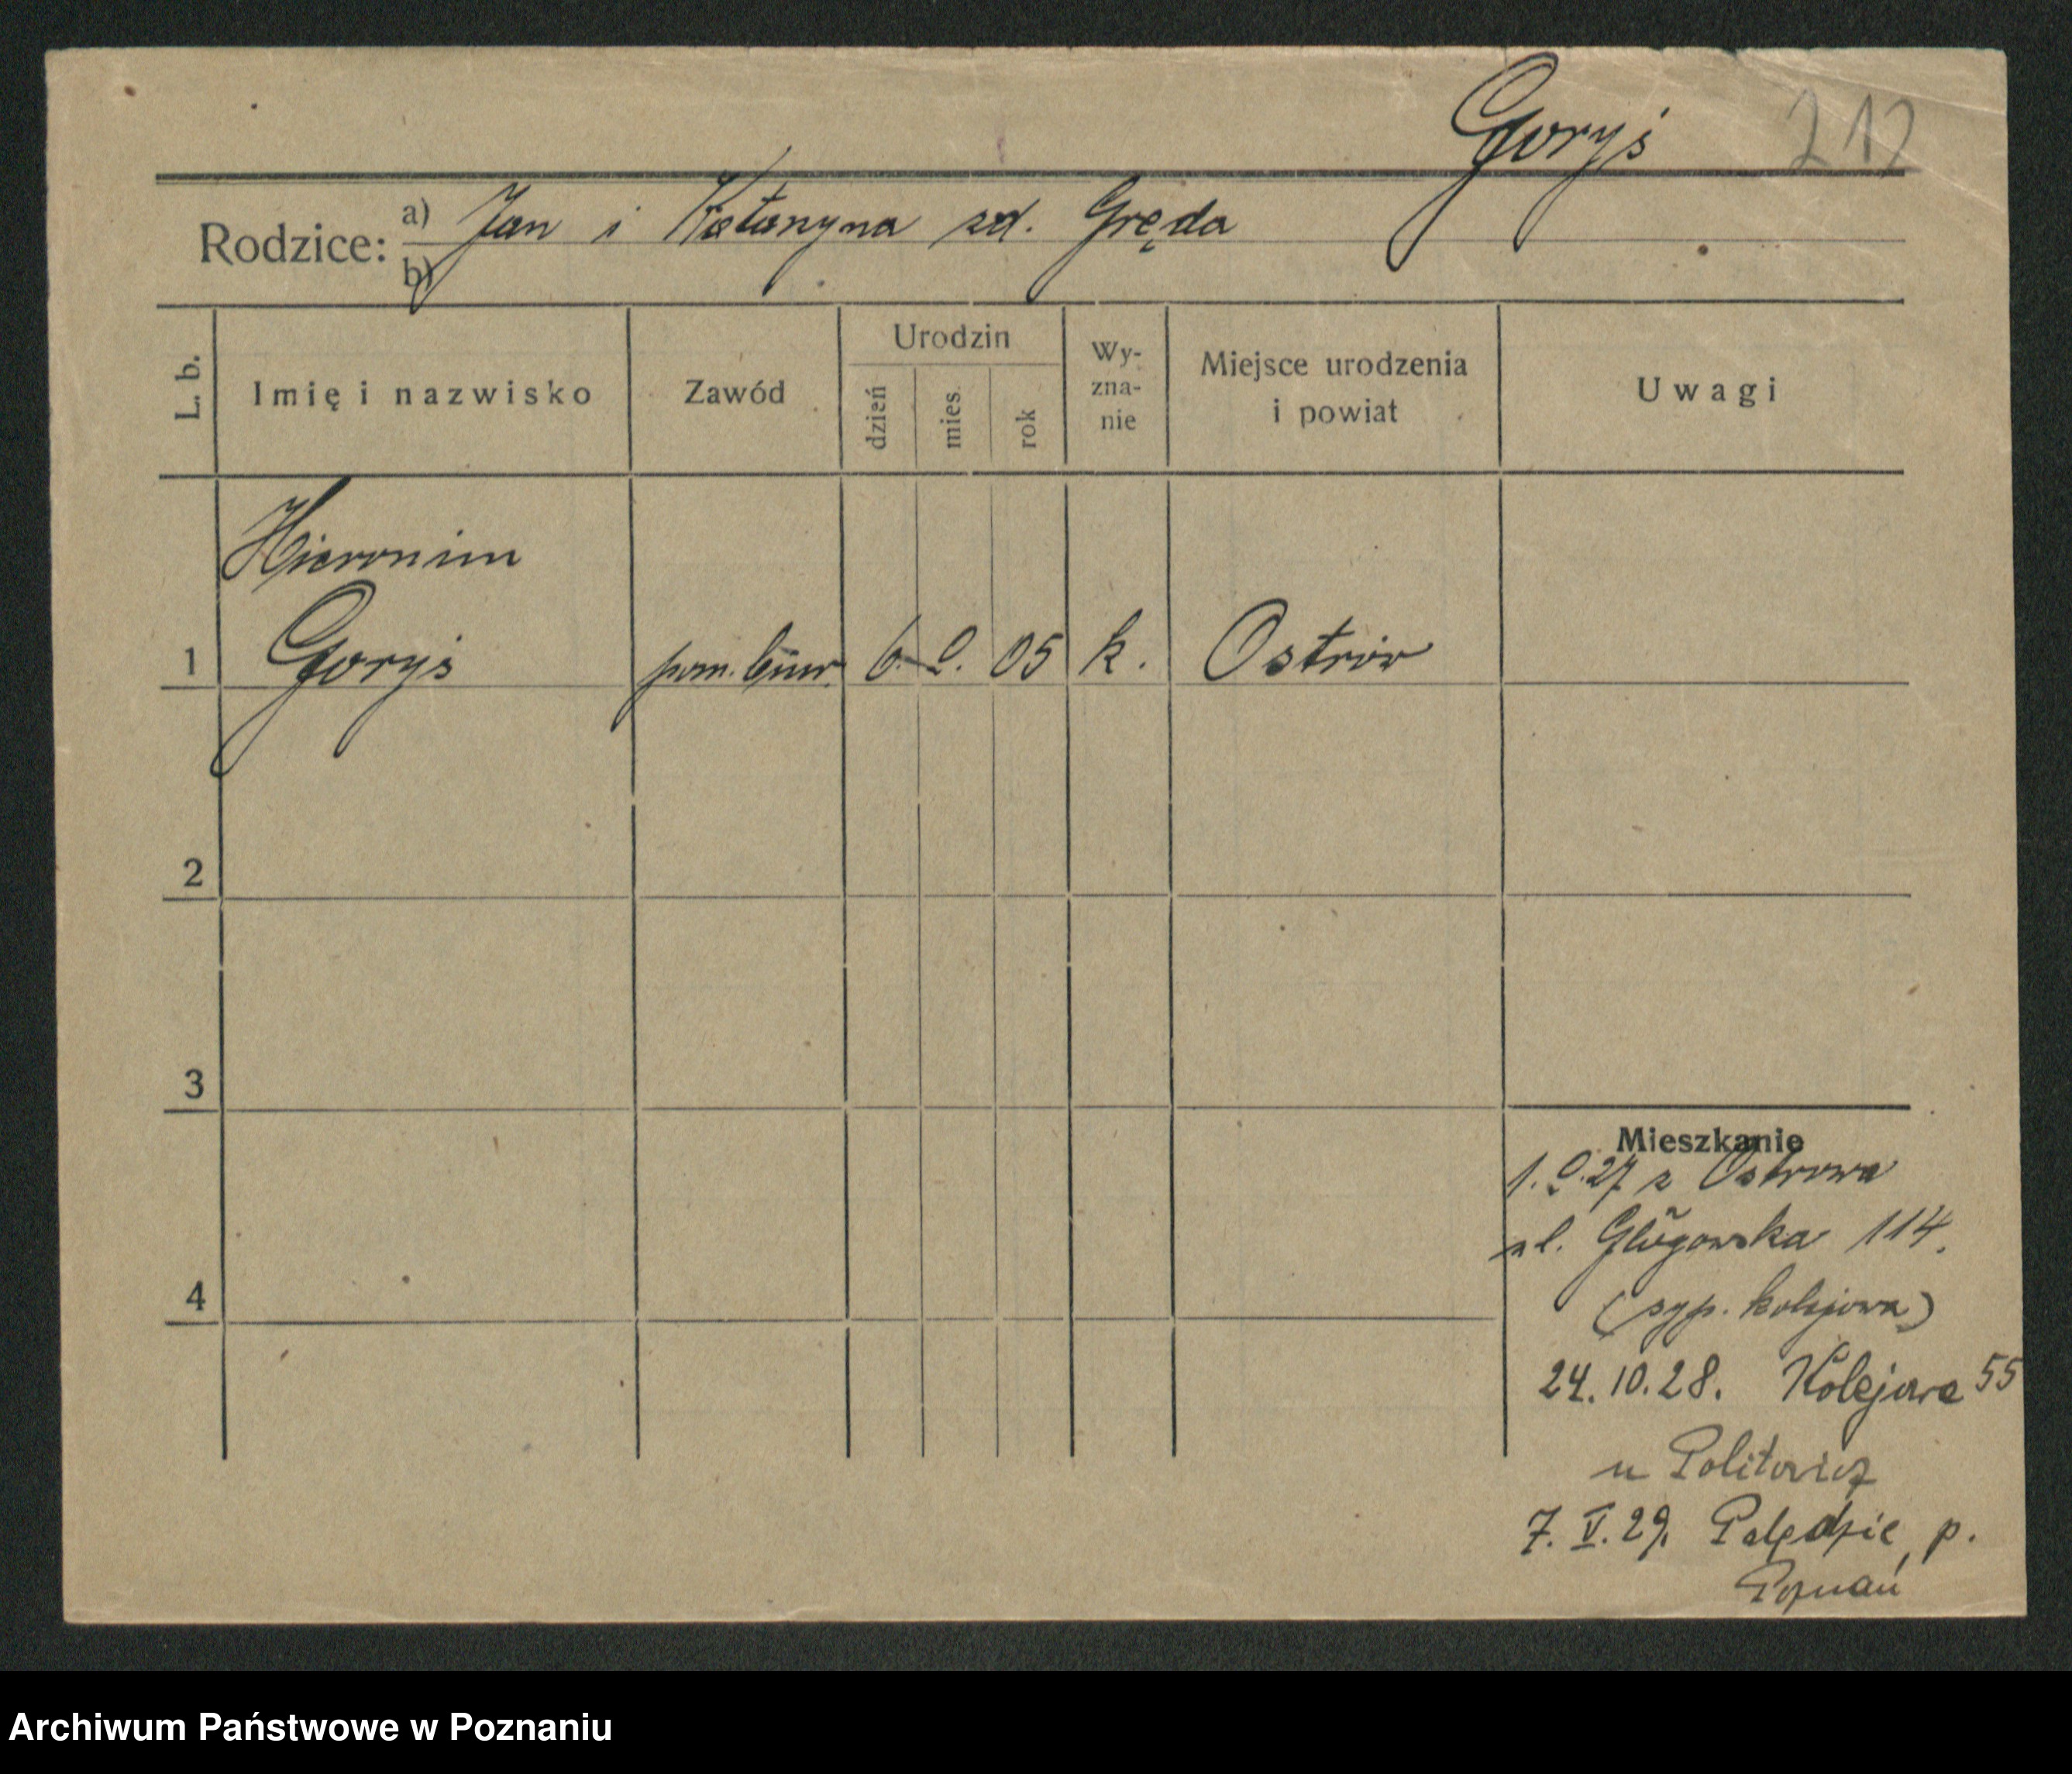 Goryś 212
Rodzice: a) Jan i Katarzyna zd. Gręda
b)
L. b. Imię i nazwisko Zawód Urodzin dzień mies. rok Wy-zna-nie Miejsce urodzenia i powiat Uwagi
Hieronim
1 Goryś pom. biur. 6. 9. 05 k. Ostrów
2
3
Mieszkanie
1. 9. 27 z Ostrowa
ul. Głogowska 114.
4
(syp. kolejowa)
24. 10. 28. Kolejowa 55
u Politowicz
7. V. 29. Palędzie, p.
Poznań
Archiwum Państwowe w Poznaniu